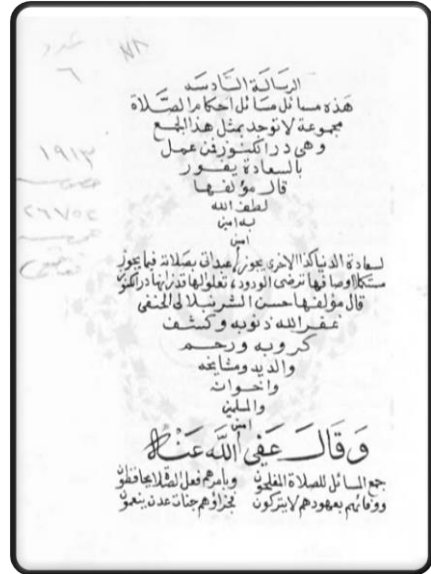 عدد
٦
الرسالة السادسه
هذه مسائل مسائل احكام الصلاة
مجموعة لا توجد بمثل هذا الجمع
وهى در الكنوز فمن عمل
بالسعادة يفوز
قال مؤلفها
لطف الله
به امين
امين
لسعادة الدنيا كذا الاخرى يجوز عبد اتى بصلاته فيما يجوز
مستكملا اوصافها ترضى الودود
قال مؤلفها حسن الشرنبلالى الحنفى
غفر الله ذنوبه وكشف
كروبه ورحم
والديه ومشايخه
واخوانه
والمسلمين
امين
وقال عفى الله عنه
جمع المسائل للصلاة المفلحون وبأمرهم فعل لها يحافظون
ووفائهم بعهودهم لا يتركون فجزاؤهم جنات عدن ينعمون
١٩١٣
خصوصيه
٢٦٧٥٢
عموميه